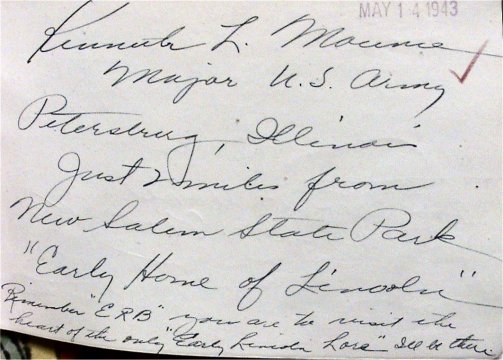 MAY 14 1943
Kenneth L.
Major U.S. Army
Petersburg, Illinois
Just 2 miles from
New Salem State Park
"Early Home of Lincoln"
Remember "ERB" you are to visit the
heart of the only "Early Lincoln Lore" I'll be there